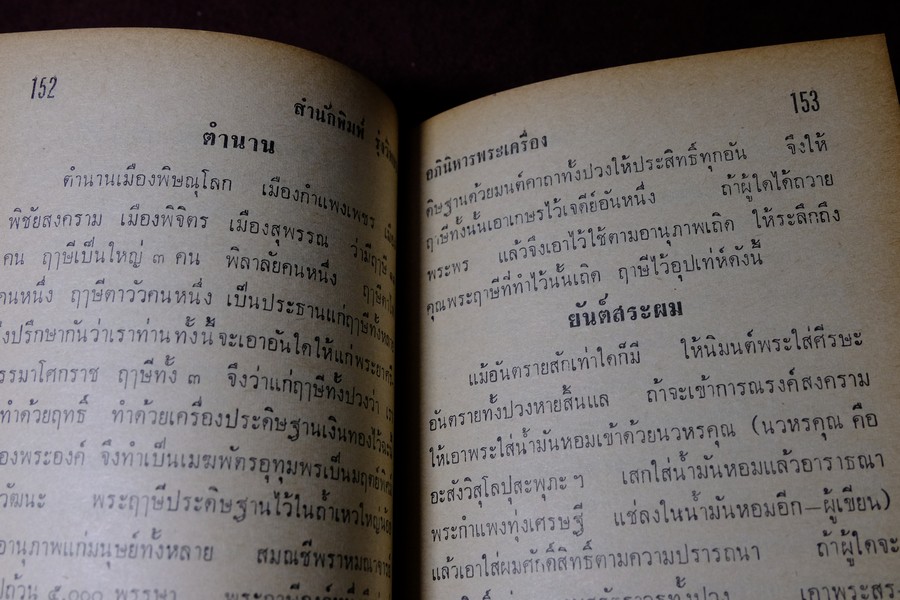 152
สำนักพิมพ์
ตำนาน
ตำนานเมืองพิษณุโลก เมืองกำแพงเพชร
พิชัยสงคราม เมืองพิจิตร เมืองสุพรรณ ว่ามีฤๅษี
คน ฤๅษีเป็นใหญ่ ๓ คน พิลาลัยคนหนึ่ง
คนหนึ่ง ฤๅษีตาวัวคนหนึ่ง เป็นประธานแก่ฤๅษีทั้งหลาย
ปรึกษากันว่าเราท่านทั้งนี้จะเอาอันใดให้แก่พระยา
ฤๅษีทั้ง ๓ จึงว่าแก่ฤๅษีทั้งปวงว่า
ทำด้วยฤทธิ์ ทำด้วยเครื่องประดิษฐานเงินทองไว้
องพระองค์ จึงทำเป็นเมฆพัตรอุทุมพรเป็นมฤตย์
วัฒนะ พระฤๅษีประดิษฐานไว้ในถ้ำเหวใหญ่น้อย
อานุภาพแก่มนุษย์ทั้งหลาย สมณชีพราหมณาจารย์
ถ้วน ๕,๐๐๐ พรรษา
153
อภินิหารพระเครื่อง
ดิษฐานด้วยมนต์คาถาทั้งปวงให้ประสิทธิ์ทุกอัน จึงให้
ฤๅษีทั้งนั้นเอาเกษรไว้เจดีย์อันหนึ่ง ถ้าผู้ใดได้ถวาย
พระพร แล้วจึงเอาไว้ใช้ตามอานุภาพเถิด ให้ระลึกถึง
คุณพระฤๅษีที่ทำไว้นั้นเถิด ฤๅษีไว้อุปเท่ห์ดังนี้
ยันต์สระผม
แม้อันตรายสักเท่าใดก็มี ให้นิมนต์พระใส่ศีรษะ
อันตรายทั้งปวงหายสิ้นแล ถ้าจะเข้าการณรงค์สงคราม
ให้เอาพระใส่น้ำมันหอมเข้าด้วยนวหรคุณ (นวหรคุณ คือ
อะสังวิสุโลปุสะพุภะฯ เสกใส่น้ำมันหอมแล้วอาราธณา
พระกำแพงทุ่งเศรษฐี แช่ลงในน้ำมันหอมอีก—ผู้เขียน)
แล้วเอาใส่ผมศักดิ์สิทธิ์ตามความปรารถนา ถ้าผู้ใดจะ
ทั้งปวง เอาพระสร